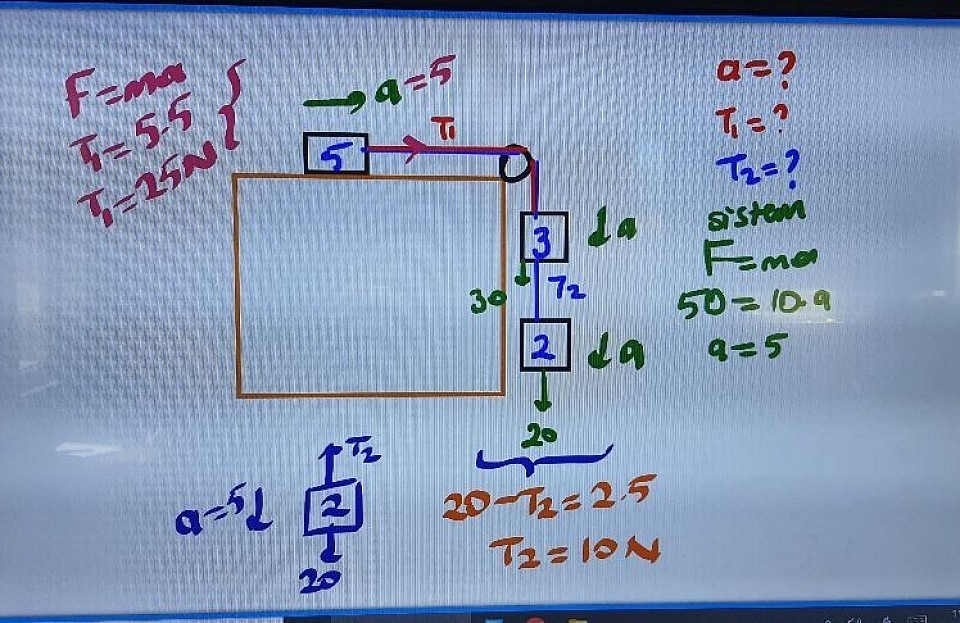 F=ma
T₁=5.5
T₁=25N
a=5
5
T₁
3
a
30
T₂
2
a
20
a=?
T₁=?
T₂=?
sistem
F=ma
50=10.a
a=5
T₂
a=5
2
20
20-T₂=2.5
T₂=10N